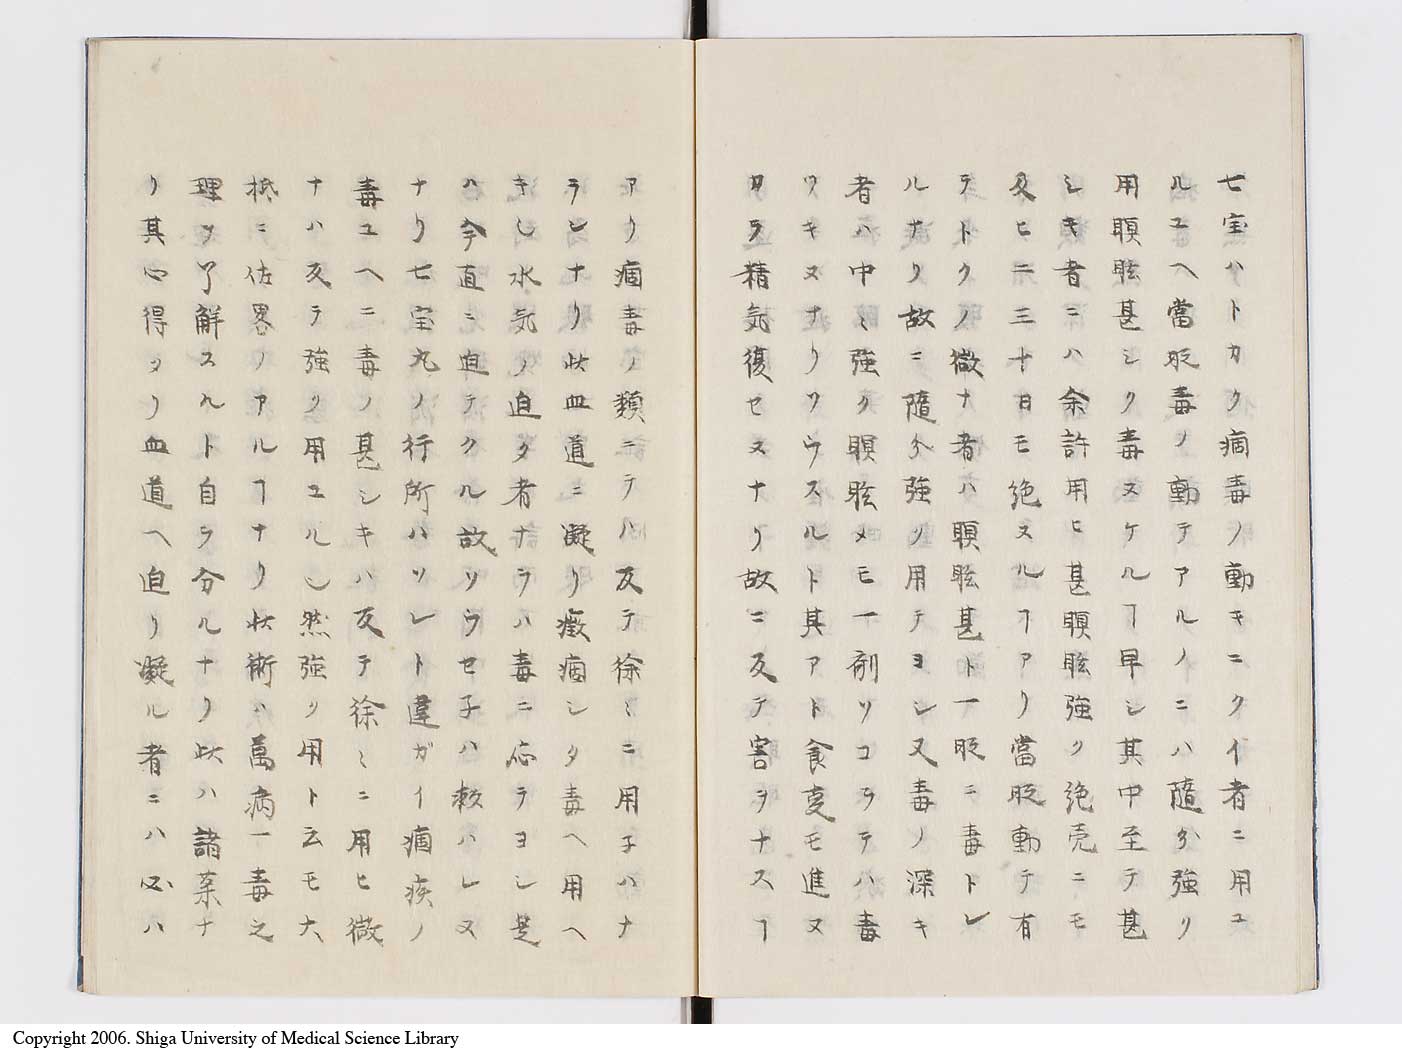 七宝ハトカク痼毒ノ動キニクイ者ニ用ユ
ルユヘ當㫘毒ノ動テアルノニハ隨分強ク
用瞑眩甚シク毒ヌケルヿ早シ其中至テ甚
シキ者ニハ余許用ヒ甚瞑眩強ク絶売ニモ
及ヒ二三十日モ絶ヌルヿアリ當㫘動テ有
テトクノ微ナ者ハ瞑眩甚ト一㫘ニ毒トレ
ルナリ故ニ隨分強ク用テヨシ又毒ノ深キ
者ハ中〻強ク瞑眩メモ一剤ソコラテハ毒
ツキヌナリソウスルト其アト食変モ進ヌ
カラ精気復セヌナリ故ニ反テ害ヲナスヿ
アリ痼毒ノ類ニテハ反テ徐〻ニ用子ハナ
ラシナリ此血道ニ凝リ癥痼シタ毒ヘ用ヘ
キ乄水気ノ迫タ者ナラハ毒ニ応テヨシ是
ハ今直ミ迫テクル故ソウセ子ハ救ハレヌ
ナリ七宝丸ノ行所ハソレト違ガイ痼疾ノ
毒ユヘニ毒ノ甚シキハ反テ徐〻ニ用ヒ微
ナハ反テ強ク用ユル乄然強ク用ト云モ大
抵ニ佐畧ノアルヿナリ此術ハ萬病一毒之
理ヲ了解スルト自ラ分ルナリ此ハ諸薬ナ
リ其心得タリ血道ヘ迫リ凝ル者ニハ必ハ
Copyright 2006. Shiga University of Medical Science Library